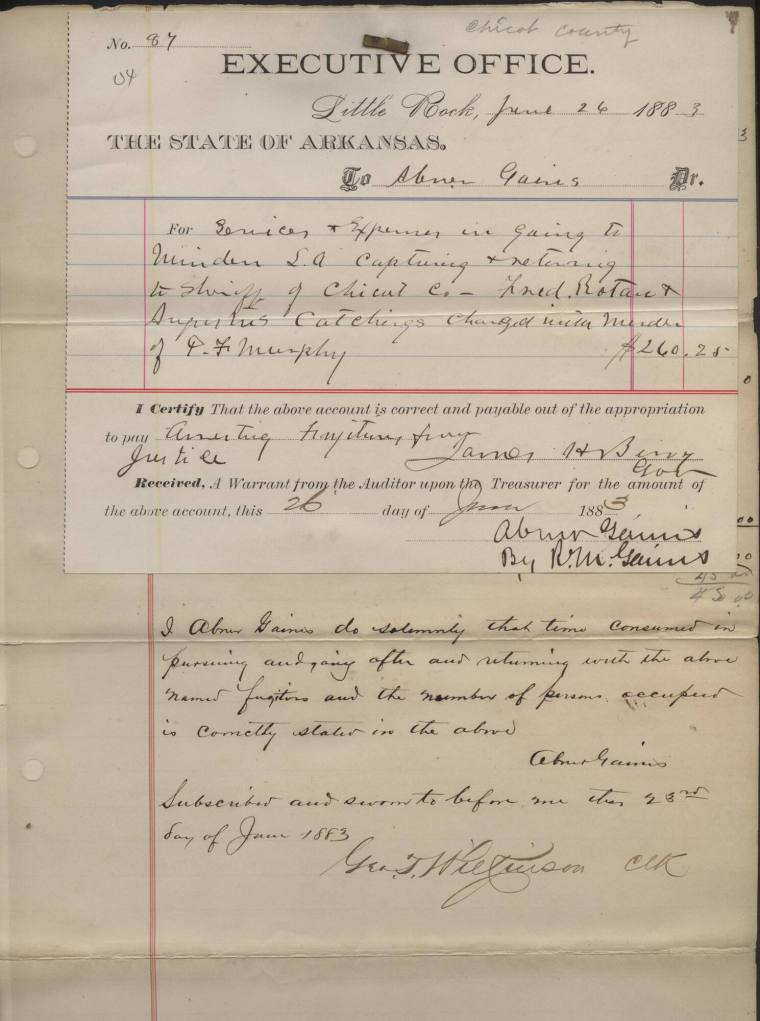 Chicot County
No. 87
EXECUTIVE OFFICE.
Little Rock, June 26 1883
3
THE STATE OF ARKANSAS.
To Abner Gaines Dr.
For Services & Expenses in going to
Minden L.A Capturing & returning
to Shriff of Chicot Co – Fred. Rotan &
Augustus Catchings charged with Murder
of P. F Murphy $260.25
0
I Certify That the above account is correct and payable out of the appropriation
to pay Arresting Fugitives from
Justice James H Berry
Gov
Received, A Warrant from the Auditor upon the Treasurer for the amount of
the above account, this 26 day of June 1883
00
Abner Gaines
By R. M. Gaines
45 00
I Abner Gaines do solemnly that time consumed in
pursuing and going after and returning with the above
named fugitives and the number of persons occupied
is correctly stated in the above
Abner Gaines
Subscribed and sworn to before me this 23rd
day of June 1883
Geo. T. Wilkinson Clk